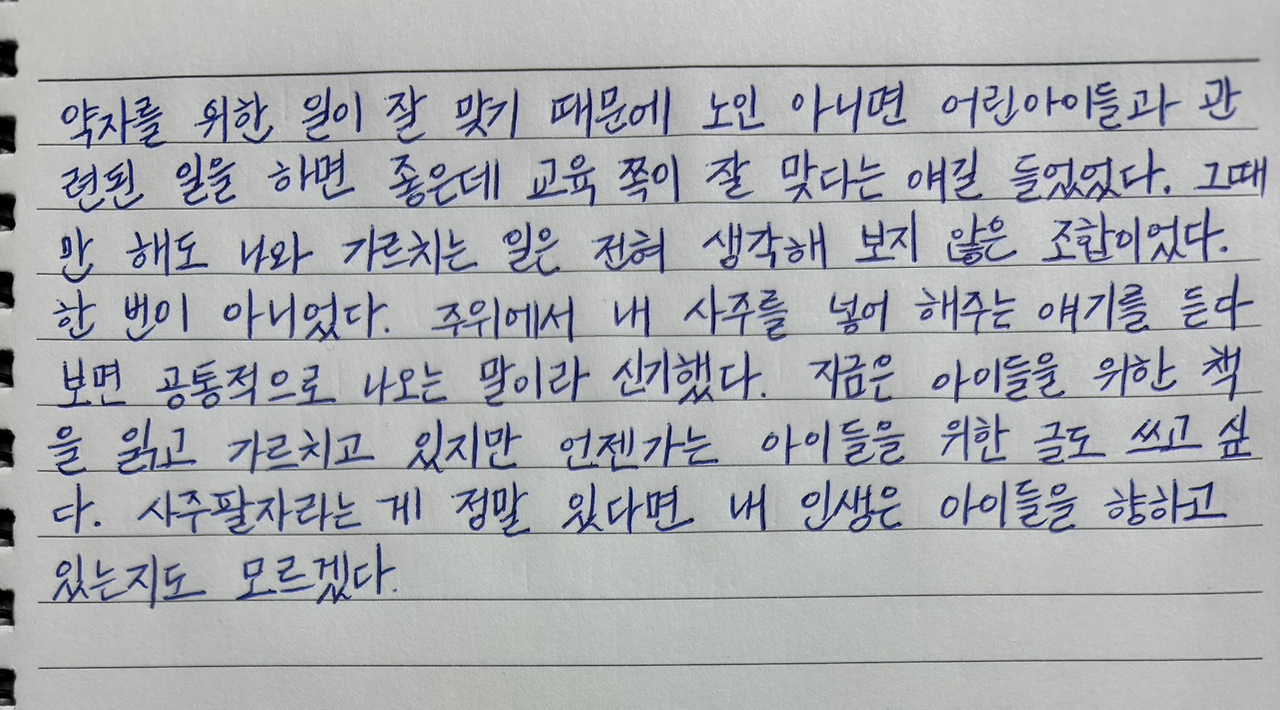 약자를 위한 일이 잘 맞기 때문에 노인 아니면 어린아이들과 관
련된 일을 하면 좋은데 교육 쪽이 잘 맞다는 얘길 들었었다. 그때
만 해도 나와 가르치는 일은 전혀 생각해 보지 않은 조합이었다.
한 번이 아니었다. 주위에서 내 사주를 넣어 해주는 얘기를 듣다
보면 공통적으로 나오는 말이라 신기했다. 지금은 아이들을 위한 책
을 읽고 가르치고 있지만 언젠가는 아이들을 위한 글도 쓰고 싶
다. 사주팔자라는 게 정말 있다면 내 인생은 아이들을 향하고
있는지도 모르겠다.